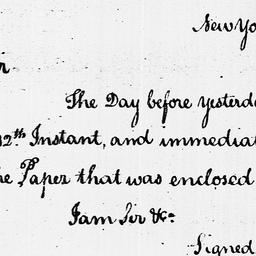 New Yo
r
The Day before yesterda
12th Instant, and immediat
he Paper that was enclosed
I am Sir &c:
Signed